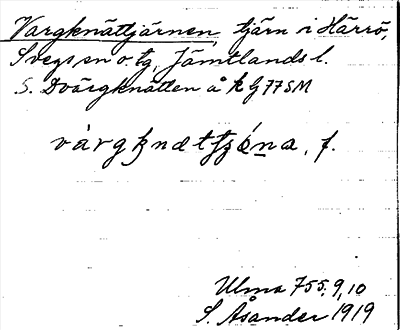 Vargknättjärnen, tjärn i Härrö,
Svegs sn o tg, Jämtlands l.
S. Dvärgknätten å kg 77 SM
Ulma 755.9,10
S. Åsander 1919